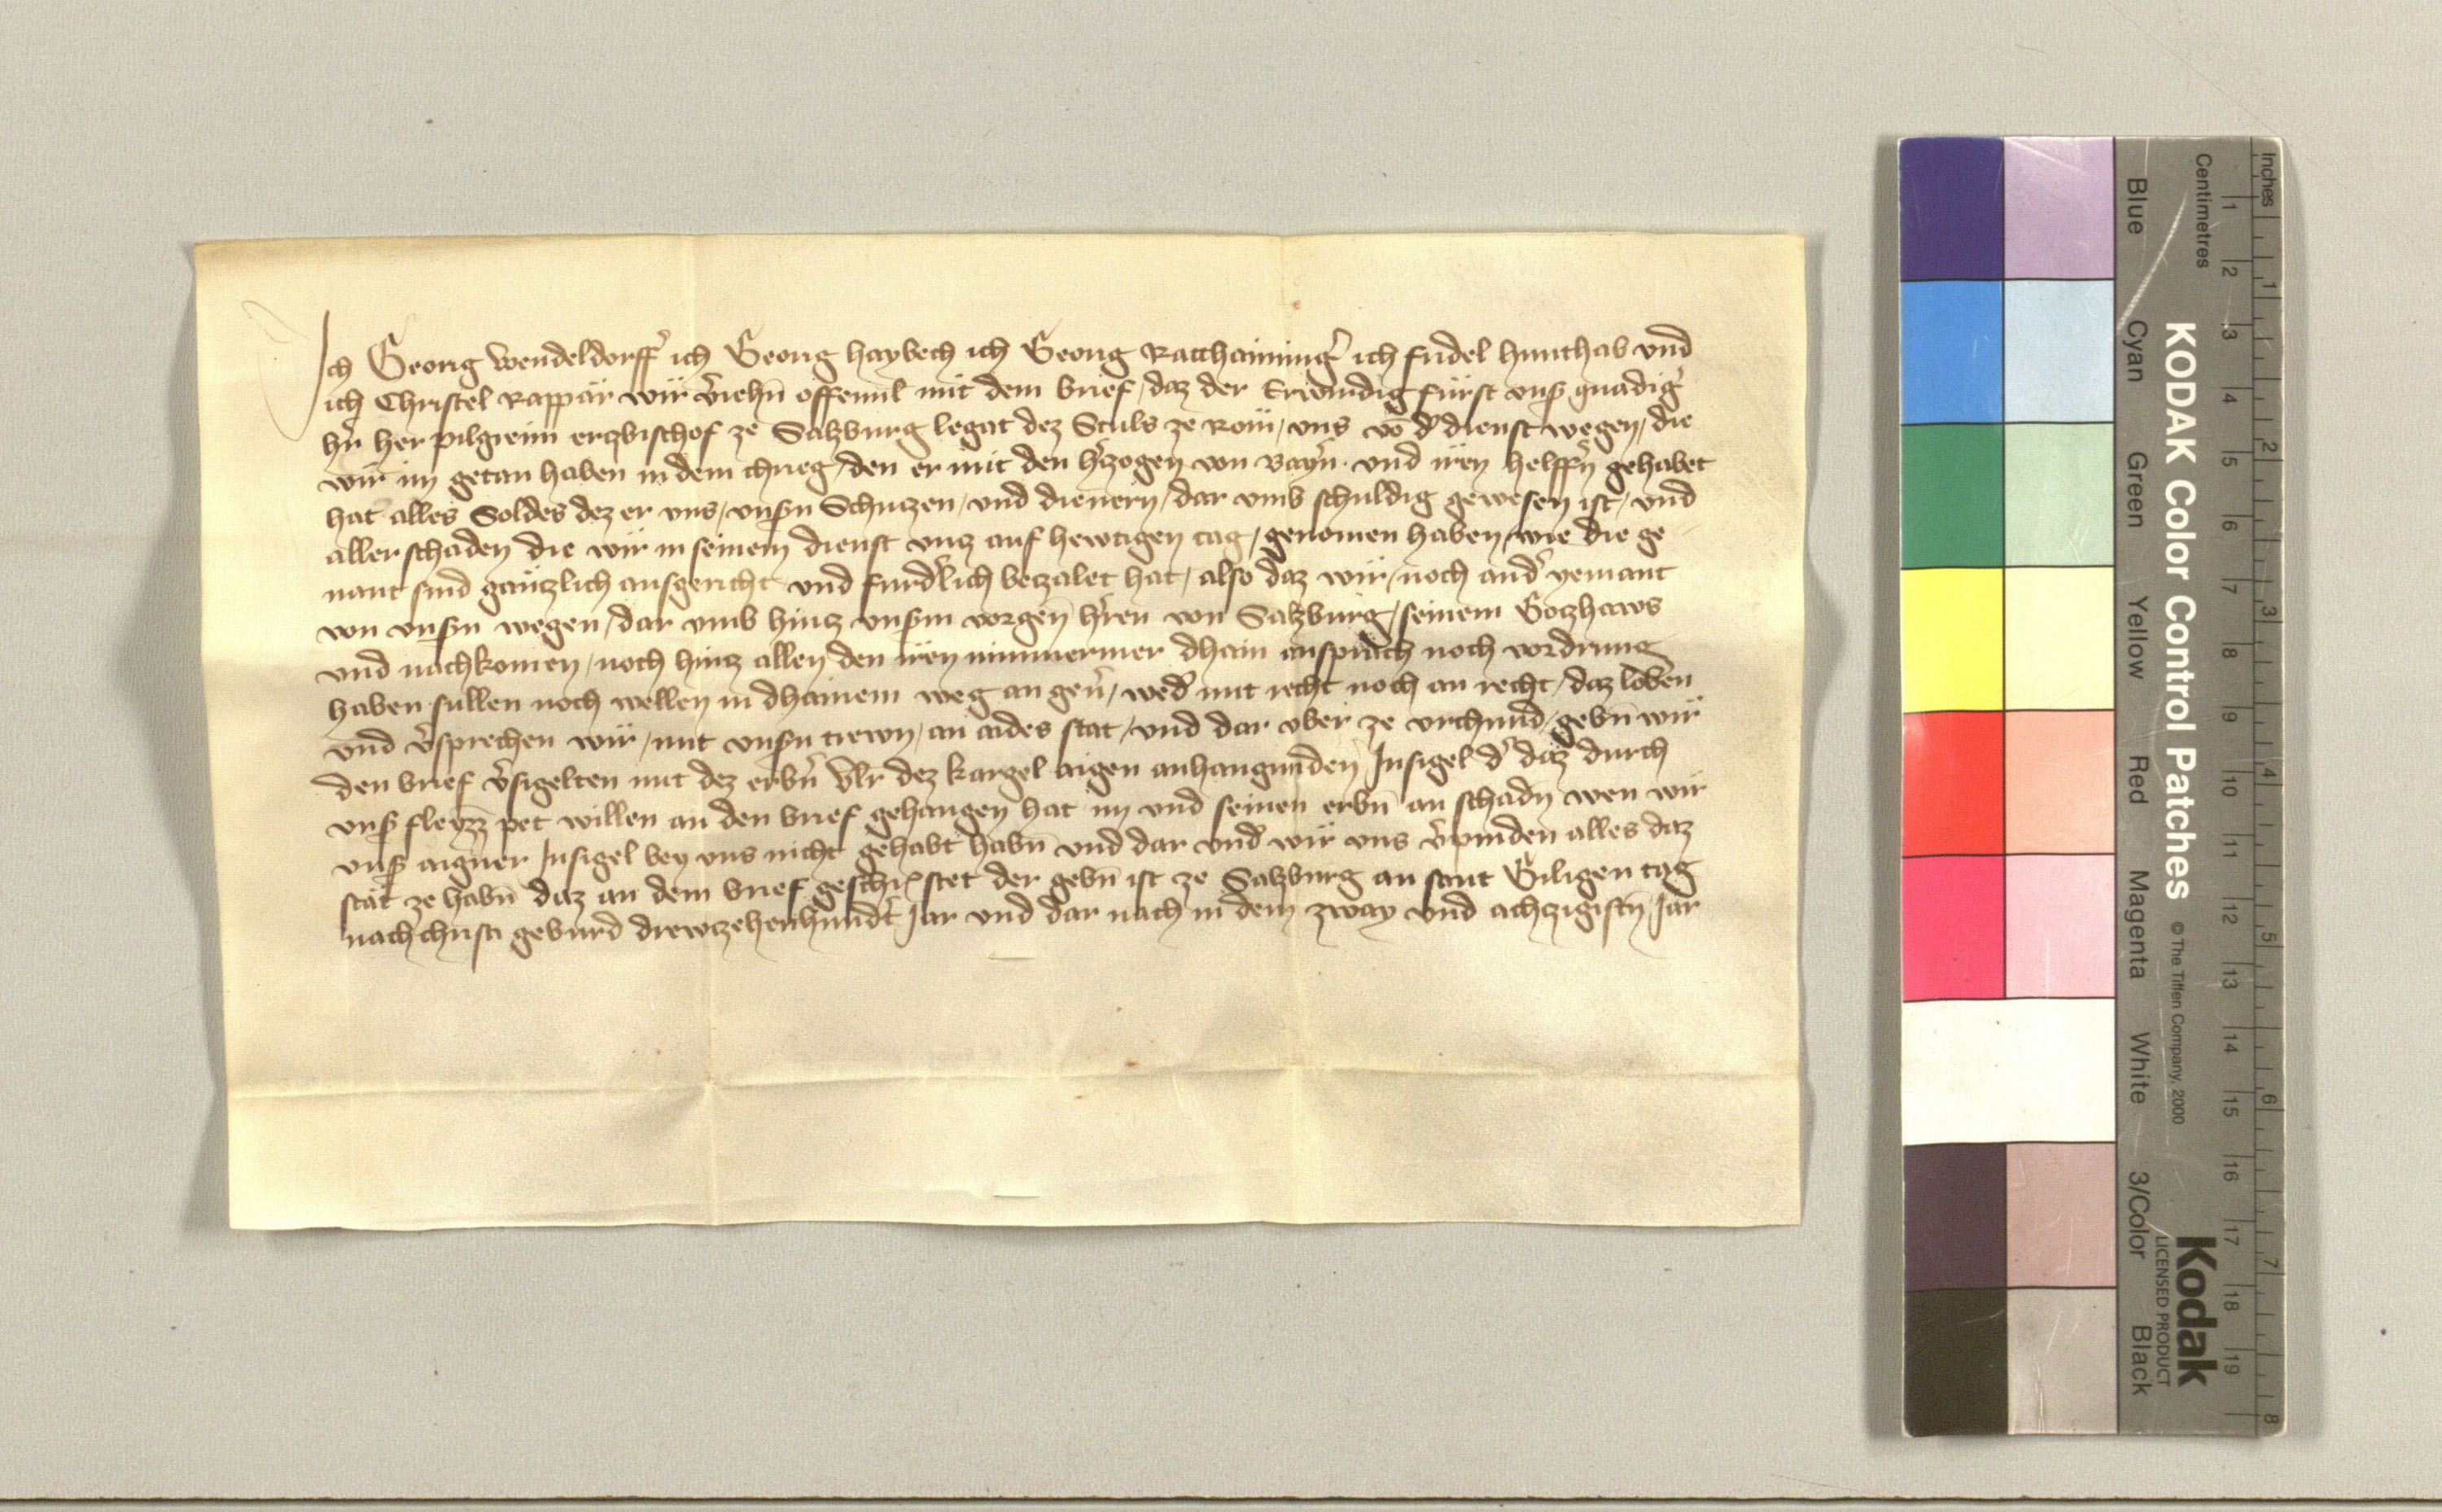 Ich Georg Wendeldorff' ich Georg haybech ich Georg Ratthaiming' ich Fridel hunthab vnd
ich Christel Rappär wir v'iehn̄ offenn̄l mit dem brief / daz der Erwirdig fürst vns' gnädig'
h'r her pilgreim erczbischof ze Salzburg legat dez Stuls ze Rom / vns vō d' dienst wegen / die
wir im getan haben in dem chrieg / den er mit den h'czogen von Bayrn̄ . vnd iren helffn̄ gehabet
hat alles Soldes dez er vns / vnsn̄ Schuczen / vnd dienern / dar vmb schuldig gewesen ist / vnd
aller schaden die wir in seinem dienst vncz auf hewtigen tag / genomen haben / wie die ge
nant sind gäntzlich ausgericht vnd furd'lich beczalet hat / also daz wir / noch and' yemant
von vnsn̄ wegen / dar vmb hincz vnsm vorgen̄ h'ren von Salzburg / seinem Goczhaws
vnd nachkomen / noch hincz allen den iren nimmermer dhain ansprach noch vordrung
haben sullen noch wellen in dhainem weg an gen̄ / wed' mit recht noch an recht / daz loben
vnd v'sprechen wir / mit vnsn̄ trewn / an aides stat / vnd dar vber ze vrchund / gebn̄ wir
den brief v'sigelten mit dez erbn̄ Vlr dez kargel aigen anhangunden Insigel d' daz durch
vns' fleyzz pet willen an den brief gehangen hat im vnd seinen erbn̄ an schadn̄ wen wir
vns' aigner Insigel bey vns nicht gehabt habn̄ vnd dar vnd' wir vns v'pinden alles daz
stät ze habn̄ daz an dem brief geschi' stet der gebn̄ ist ze Salzburg an sant Giligen tag
nach christi geburd drewczehenhundt' Jar vnd dar nach in dem zway vnd achczigistn̄ Jar
KODAK Color Control Patches © The Tiffen Company, 2000
Kodak
LICENSED PRODUCT
Inches
1 2 3 4 5 6 7 8
Centimetres
1 2 3 4 5 6 7 8 9 10 11 12 13 14 15 16 17 18 19
Blue Cyan Green Yellow Red Magenta White 3/Color Black